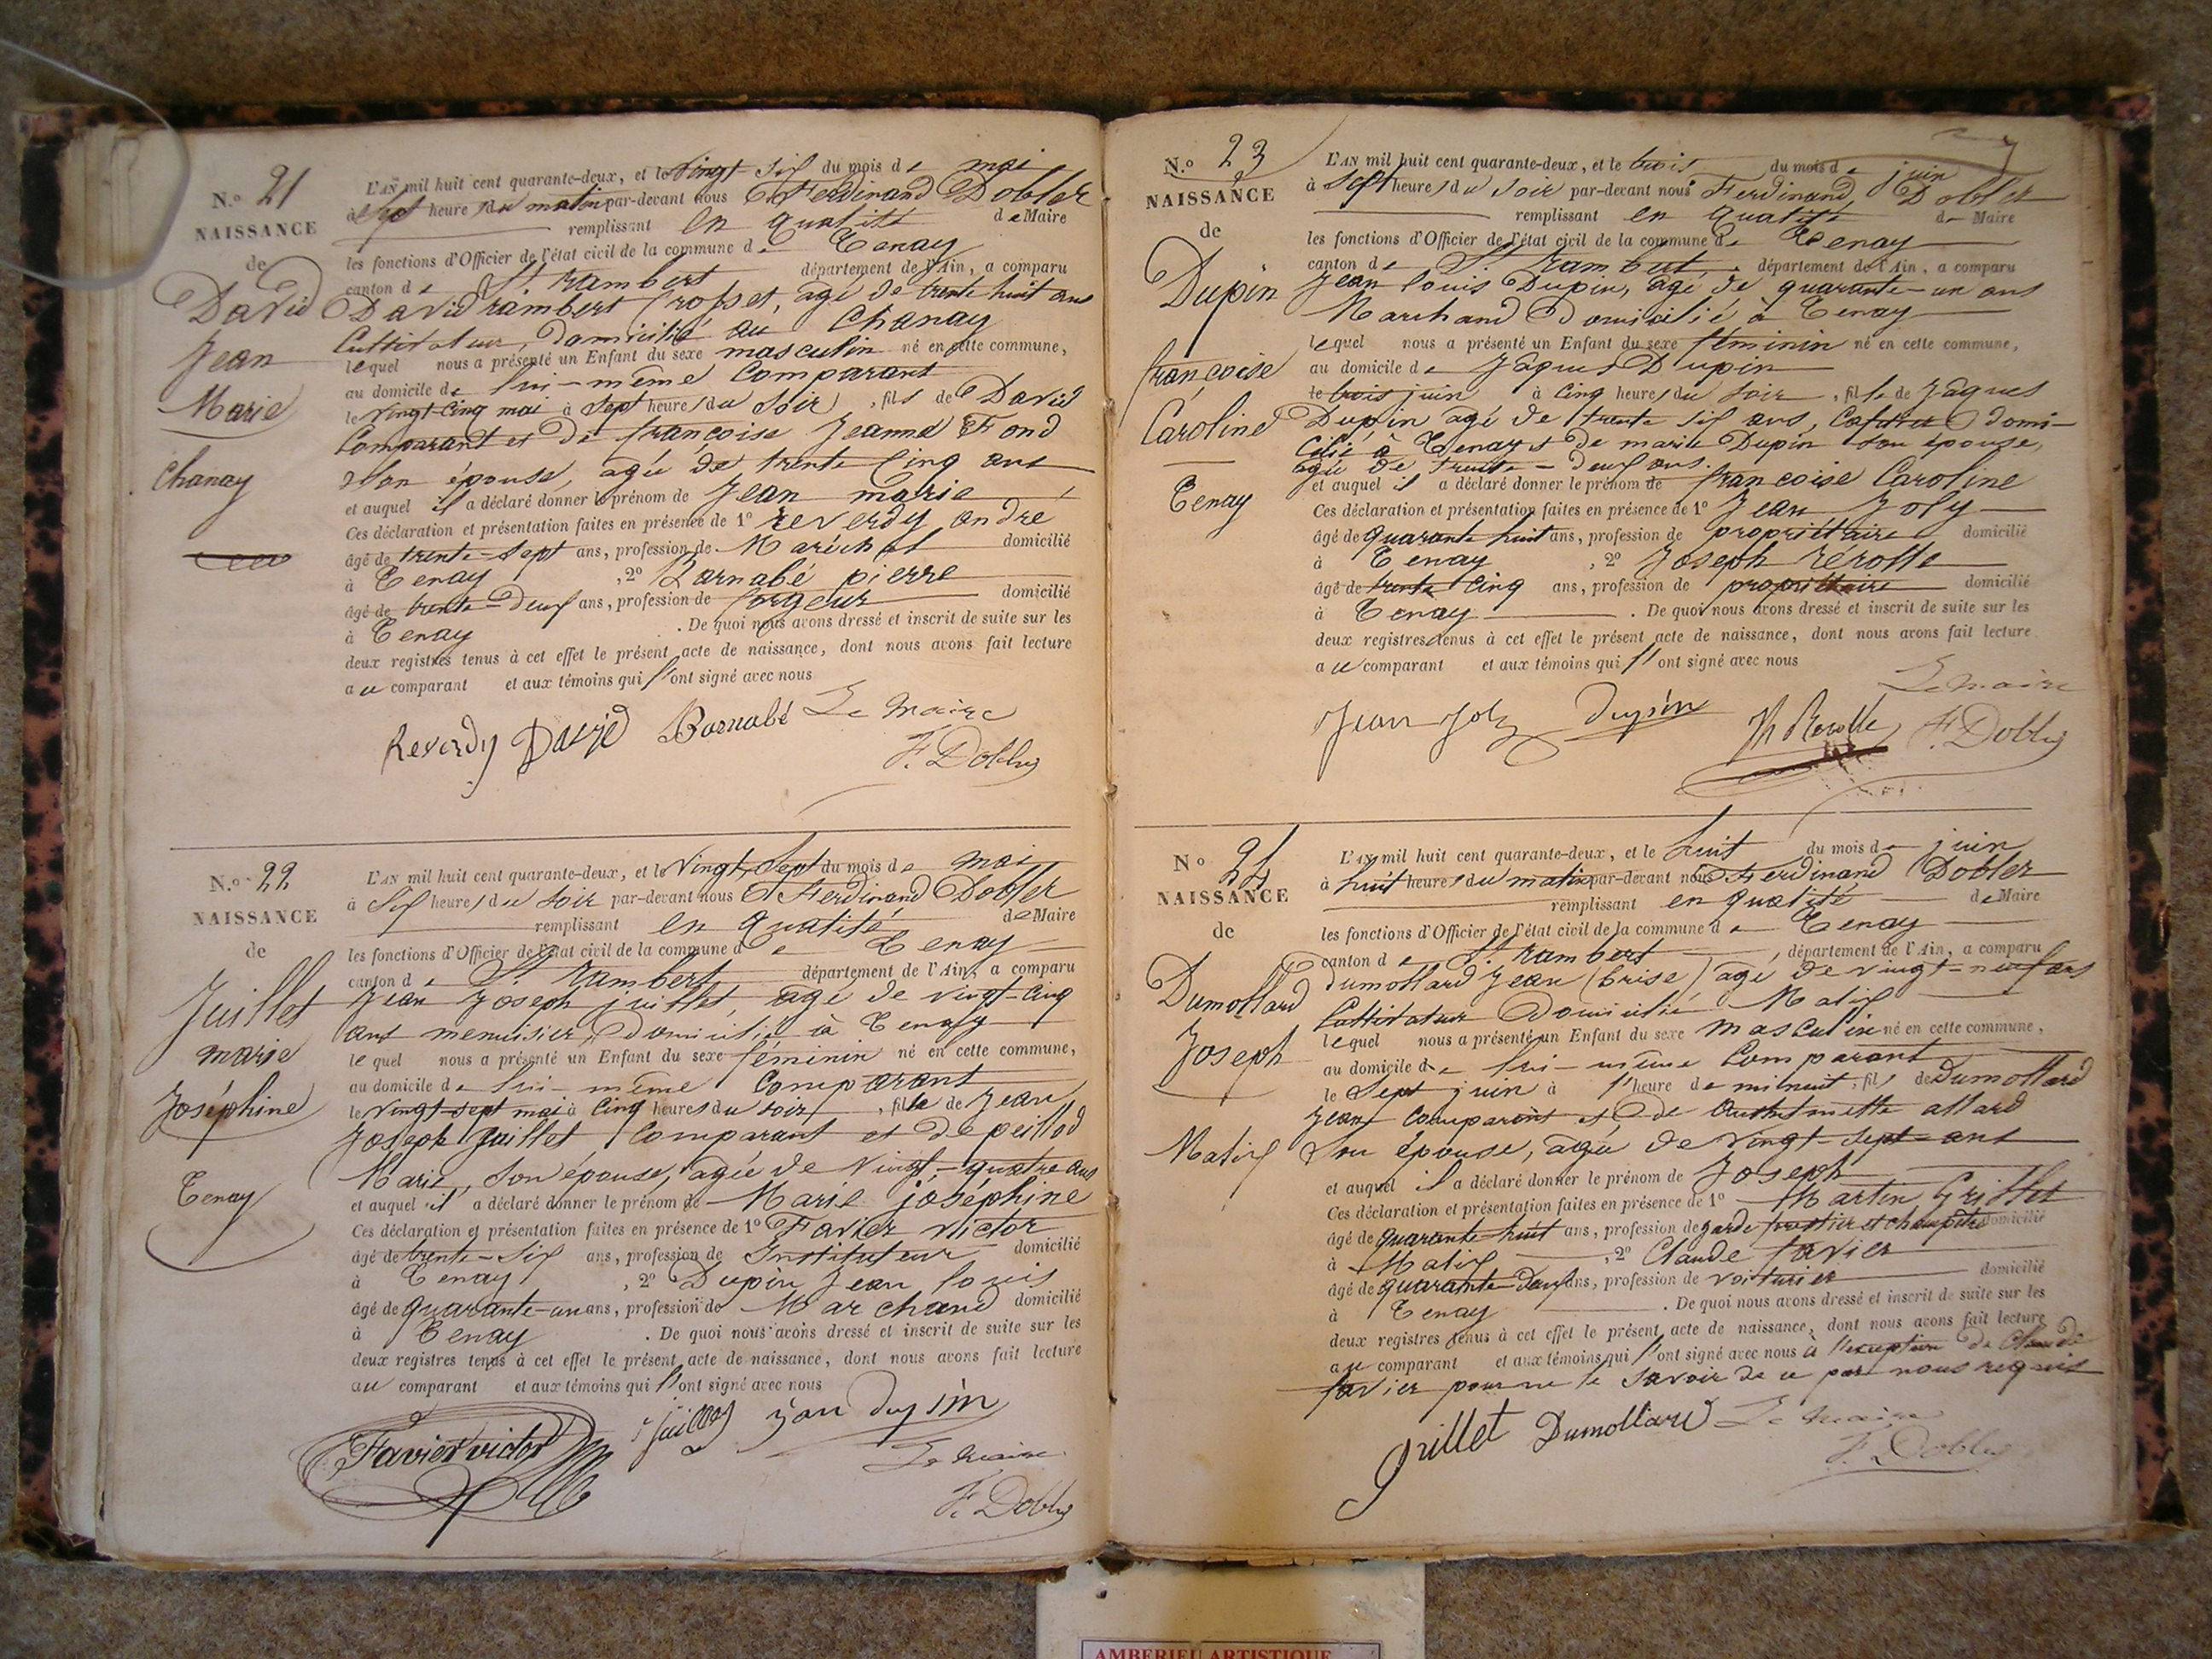 N.° 21
NAISSANCE
de
David
Jean
Marie
Chanay
L'AN mil huit cent quarante-deux, et le Vingt Six du mois de mai
à Sept heures du matin par-devant nous Ferdinand Dobler
remplissant en qualité de Maire
les fonctions d'Officier de l'état civil de la commune de Tenay
canton de St. rambert département de l'Ain, a comparu
David rambert Crosset, agé de trente huit ans
Cultivateur, domicilié au Chanay
lequel nous a présenté un Enfant du sexe masculin né en cette commune,
au domicile de lui-même Comparant
le Vingt Cinq mai à Sept heures du Soir, fils de David
Comparant et de françoise Jeanne Fond
Son épouse, agée de trente Cinq ans
et auquel il a déclaré donner le prénom de Jean marie
Ces déclaration et présentation faites en présence de 1° reverdy andré
âgé de trente-sept ans, profession de Maréchal domicilié
à Tenay, 2° Barnabé pierre
âgé de trente-deux ans, profession de forgeur domicilié
à Tenay. De quoi nous avons dressé et inscrit de suite sur les
deux registres tenus à cet effet le présent acte de naissance, dont nous avons fait lecture
au comparant et aux témoins qui l'ont signé avec nous
Reverdy David Barnabé Le Maire
F. Dobler
N.° 22
NAISSANCE
de
Juillet
marie
Joséphine
Tenay
L'AN mil huit cent quarante-deux, et le Vingt Sept du mois de mai
à Six heures du soir par-devant nous Ferdinand Dobler
remplissant en qualité de Maire
les fonctions d'Officier de l'état civil de la commune de Tenay
canton de St. rambert département de l'Ain, a comparu
Jean Joseph juillet, agé de vingt-cinq
ans menuisier, domicilié à Tenay
lequel nous a présenté un Enfant du sexe féminin né en cette commune,
au domicile de lui-même Comparant
le Vingt-sept mai à Cinq heures du soir, fille de Jean
Joseph Juillet Comparant et de peillod
Marie, son épouse, agée de Vingt-quatre ans
et auquel il a déclaré donner le prénom de Marie joséphine
Ces déclaration et présentation faites en présence de 1° Favier victor
âgé de trente-Six ans, profession de Instituteur domicilié
à Tenay, 2° Dupin Jean louis
âgé de quarante-un ans, profession de Marchand domicilié
à Tenay. De quoi nous avons dressé et inscrit de suite sur les
deux registres tenus à cet effet le présent acte de naissance, dont nous avons fait lecture
au comparant et aux témoins qui l'ont signé avec nous
Favier victor juillet jan dupin
Le Maire
F. Dobler
7
N.° 23
NAISSANCE
de
Dupin
françoise
Caroline
Tenay
L'AN mil huit cent quarante-deux, et le trois du mois de juin
à Sept heures du soir par-devant nous Ferdinand Dobler
remplissant en qualité de Maire
les fonctions d'Officier de l'état civil de la commune de Tenay
canton de St. rambert, département de l'Ain, a comparu
Jean louis Dupin, agé de quarante-un ans
Marchand Domicilié à Tenay
lequel nous a présenté un Enfant du sexe féminin né en cette commune,
au domicile de Jâques Dupin
le trois juin à Cinq heures du soir, fille de Jâques
Dupin agé de trente six ans, domi-
cilié à Tenay & de marie Dupin son épouse,
agée de trente-deux ans.
et auquel il a déclaré donner le prénom de françoise Caroline
Ces déclaration et présentation faites en présence de 1° Jean Joly
âgé de quarante huit ans, profession de propriétaire domicilié
à Tenay, 2° Joseph rérolle
âgé de trente Cinq ans, profession de propriétaire domicilié
à Tenay. De quoi nous avons dressé et inscrit de suite sur les
deux registres tenus à cet effet le présent acte de naissance, dont nous avons fait lecture
au comparant et aux témoins qui l'ont signé avec nous
Le Maire
Jean Joly Dupin Jh Rerolle F. Dobler
N° 24
NAISSANCE
de
Dumollard
Joseph
Matix
L'AN mil huit cent quarante-deux, et le huit du mois de juin
à huit heures du matin par-devant nous Ferdinand Dobler
remplissant en qualité de Maire
les fonctions d'Officier de l'état civil de la commune de Tenay
canton de St. rambert, département de l'Ain, a comparu
Dumollard Jean (brise) agé de vingt-neuf ans
Cultivateur Domicilié Matix
lequel nous a présenté un Enfant du sexe masculin né en cette commune,
au domicile de lui-même Comparant
le Sept juin à l'heure de minuit, fils de Dumollard
Jean Comparant et de allard
Son épouse, agée de Vingt-Sept ans
et auquel il a déclaré donner le prénom de Joseph
Ces déclaration et présentation faites en présence de 1° Martin Grillet
âgé de quarante-huit ans, profession de garde forestier et champêtre domicilié
à Matix, 2° Claude favier
âgé de quarante-deux ans, profession de voiturier domicilié
à Tenay. De quoi nous avons dressé et inscrit de suite sur les
deux registres tenus à cet effet le présent acte de naissance, dont nous avons fait lecture
au comparant et aux témoins qui l'ont signé avec nous à l'exception de Claude
favier pour ne le savoir de ce par nous requis
Grillet Dumollard Le Maire
F. Dobler
AMBERIEU ARTISTIQUE